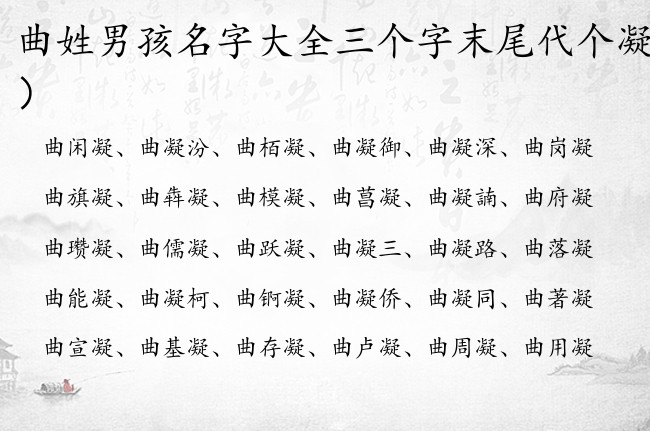 曲姓男孩名字大全三个字末尾代个凝
）
曲闲凝、曲凝汾、曲栢凝、曲凝御、曲凝深、曲岗凝
曲旗凝、曲犇凝、曲模凝、曲菖凝、曲凝諵、曲府凝
曲瓒凝、曲儒凝、曲跃凝、曲凝三、曲凝路、曲落凝
曲能凝、曲凝柯、曲锕凝、曲凝侨、曲凝同、曲著凝
曲宣凝、曲基凝、曲存凝、曲卢凝、曲周凝、曲用凝